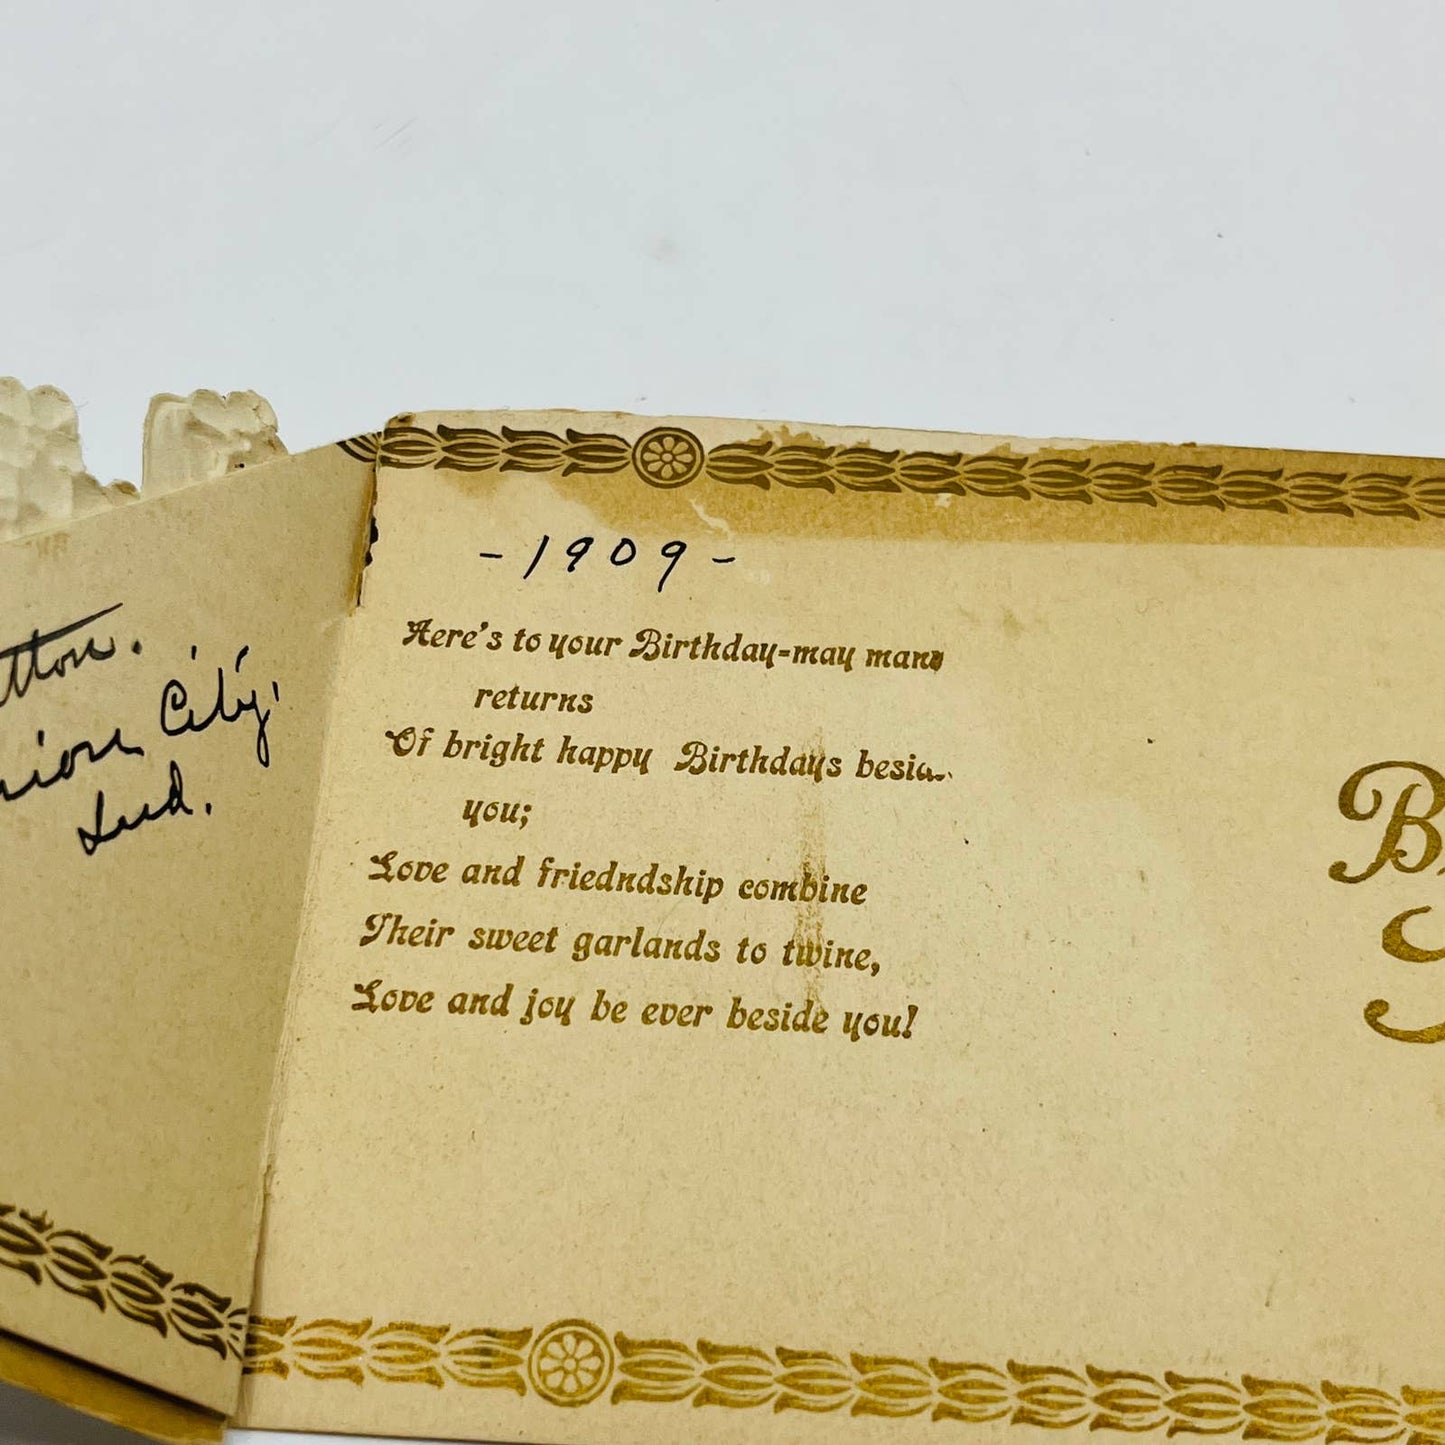 - 1909 -
Here's to your Birthday=may many
returns
Of bright happy Birthdays
you;
Love and friedndship combine
Their sweet garlands to twine,
Love and joy be ever beside you!
City,
Ind.